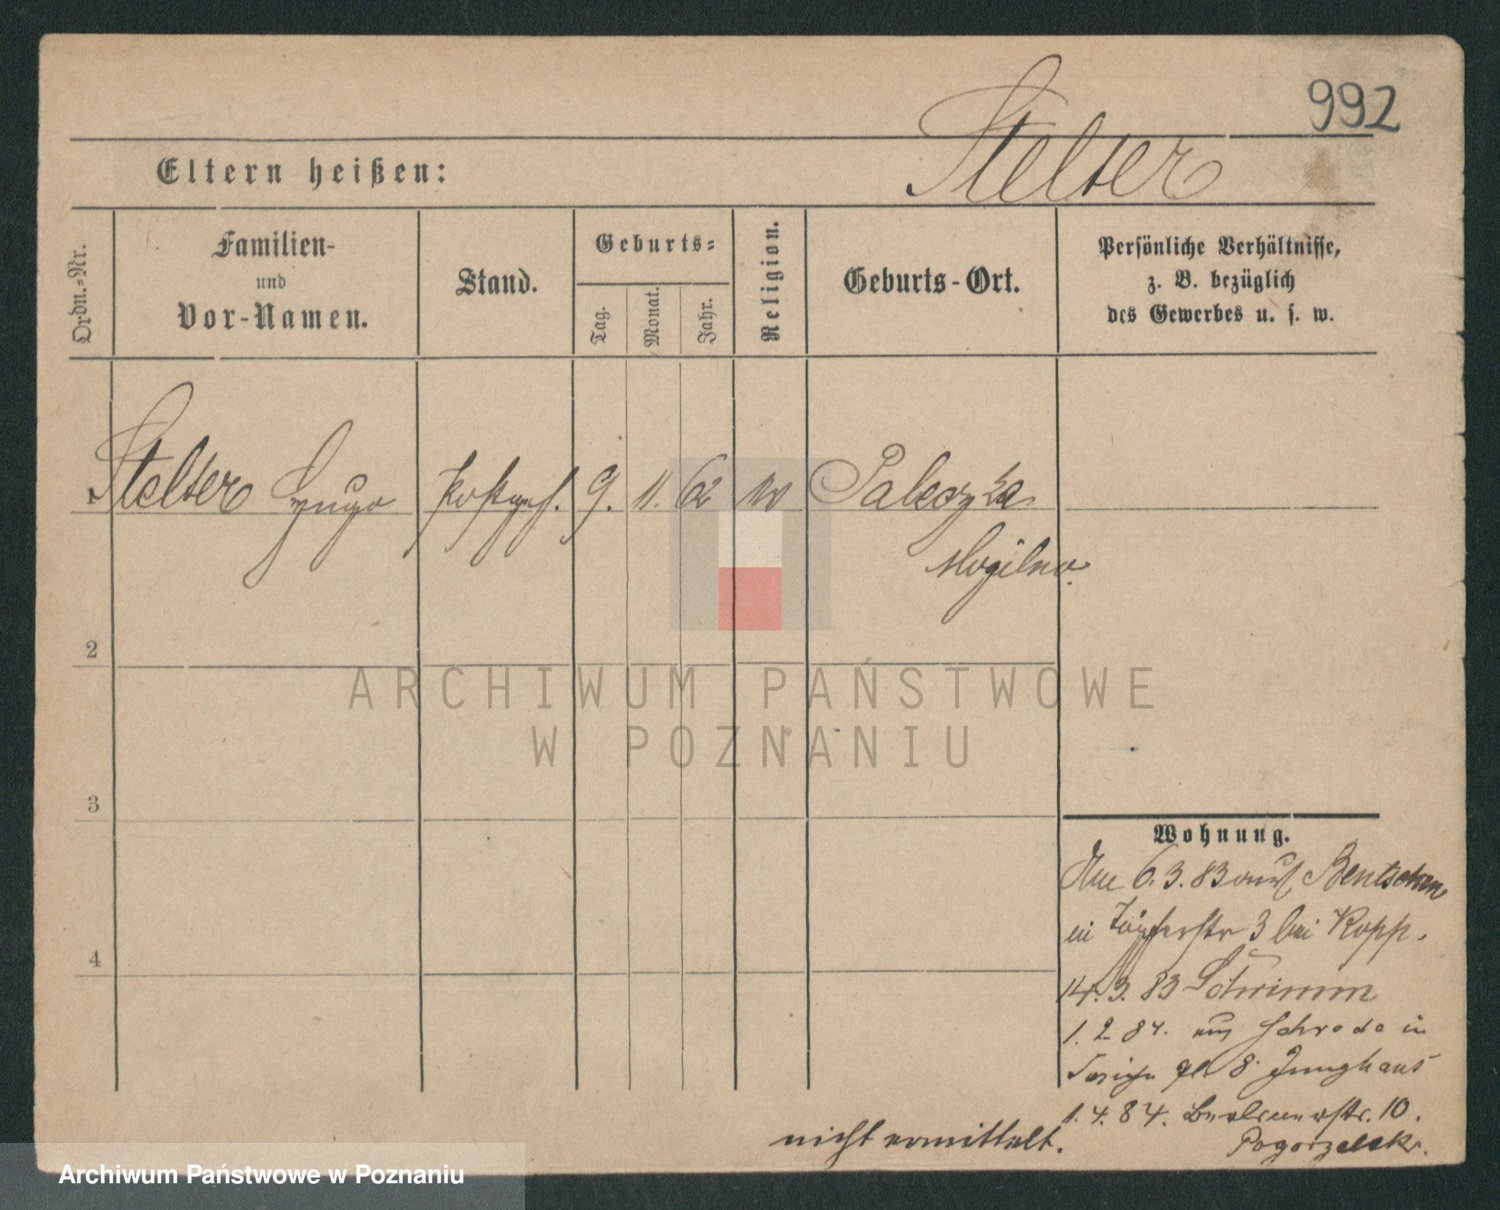 992
Stelter
Eltern heißen:
Ordn.-Nr.
Familien-
und
Vor-Namen.
Stand.
Geburts-
Tag.
Monat.
Jahr.
Religion.
Geburts-Ort.
Persönliche Verhältnisse,
z. B. bezüglich
des Gewerbes u. s. w.
1 Stelter Hugo 9. 11. 62 Paleczka
Mogilno.
2
3
4
ARCHIWUM PAŃSTWOWE
W POZNANIU
Wohnung.
6.3.83 aus Bentschen
in Töpferstr 3 bei Kopp.
14.3.83 Schrimm
1.2.84. aus Schroda in
8. Junghans
1.4.84. 10.
Pogorzelski.
nicht ermittelt.
Archiwum Państwowe w Poznaniu